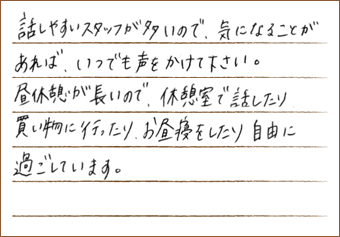 話しやすいスタッフが多いので、気になることが
あれば、いつでも声をかけて下さい。
昼休憩が長いので、休憩室で話したり
買い物に行ったり、お昼寝をしたり自由に
過ごしています。